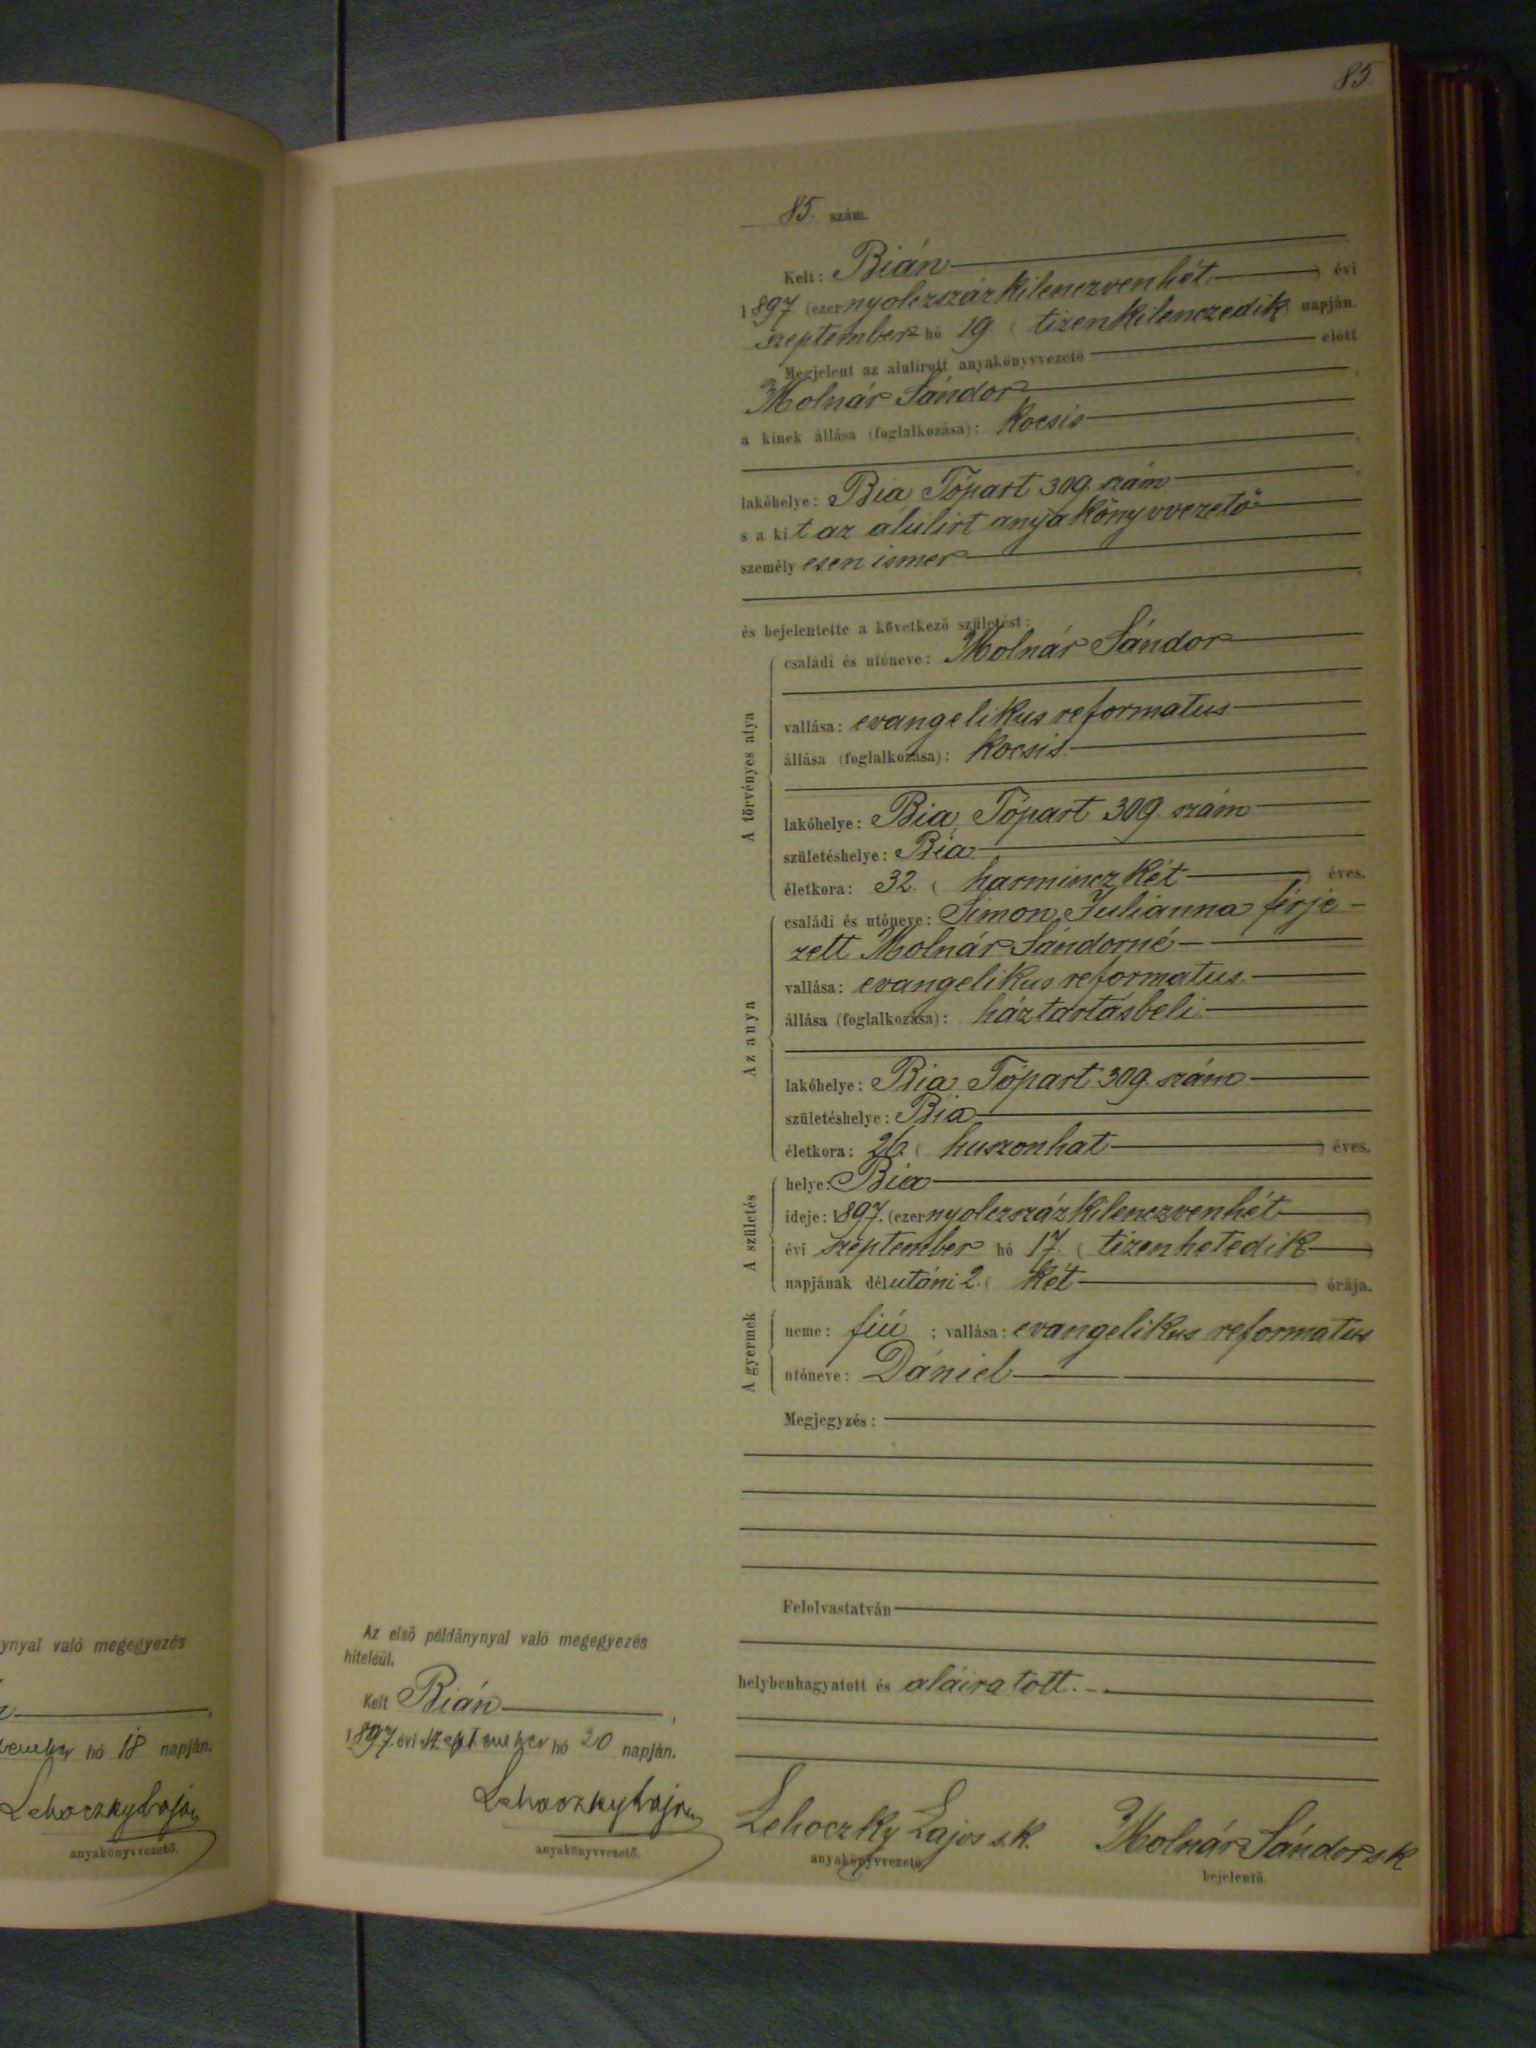 85.
85. szám.
Kelt: Bián
1897 (ezernyolczszázkilenczvenhét) évi
szeptember hó 19 (tizenkilenczedik napján.
Megjelent az alulirott anyakönyvvezető előtt
Molnár Sándor
a kinek állása (foglalkozása): kocsis
lakóhelye: Bia Tópart 309. szám
s a kit az álulirt anyakönyvvezető
személyesen ismer
és bejelentette a következő születést:
A törvényes atya
családi és utóneve: Molnár Sándor
vallása: evangelikus reformatus
állása (foglalkozása): kocsis
lakóhelye: Bia, Tópart 309. szám
születéshelye: Bia
életkora: 32. (harminczkét) éves.
Az anya
családi és utóneve: Simon Julianna férje-
zett Molnár Sándorné
vallása: evangelikus reformatus
állása (foglalkozása): háztartásbeli
lakóhelye: Bia, Tópart 309. szám
születéshelye: Bia
életkora: 26. (huszonhat) éves.
A születés
helye: Bia
ideje: 1897. (ezernyolczszázkilenczvenhét)
évi szeptember hó 17. (tizenhetedik)
napjának délutáni 2. (két) órája.
A gyermek
neme: fiú ; vallása: evangelikus reformatus
utóneve: Dániel
Megjegyzés:
Felolvastatván
helybenhagyatott és aláiratott.
Lehoczky Lajos s.k.
anyakönyvvezető
Molnár Sándor s.k.
bejelentő.
Az első példánynyal való megegyezés
hiteléül.
Kelt Bián,
1897. évi szeptember hó 20 napján.
Lehoczky Lajos
anyakönyvvezető.
ynyal való megegyezés
hó 18 napján.
Lehoczky Lajos
anyakönyvvezető.